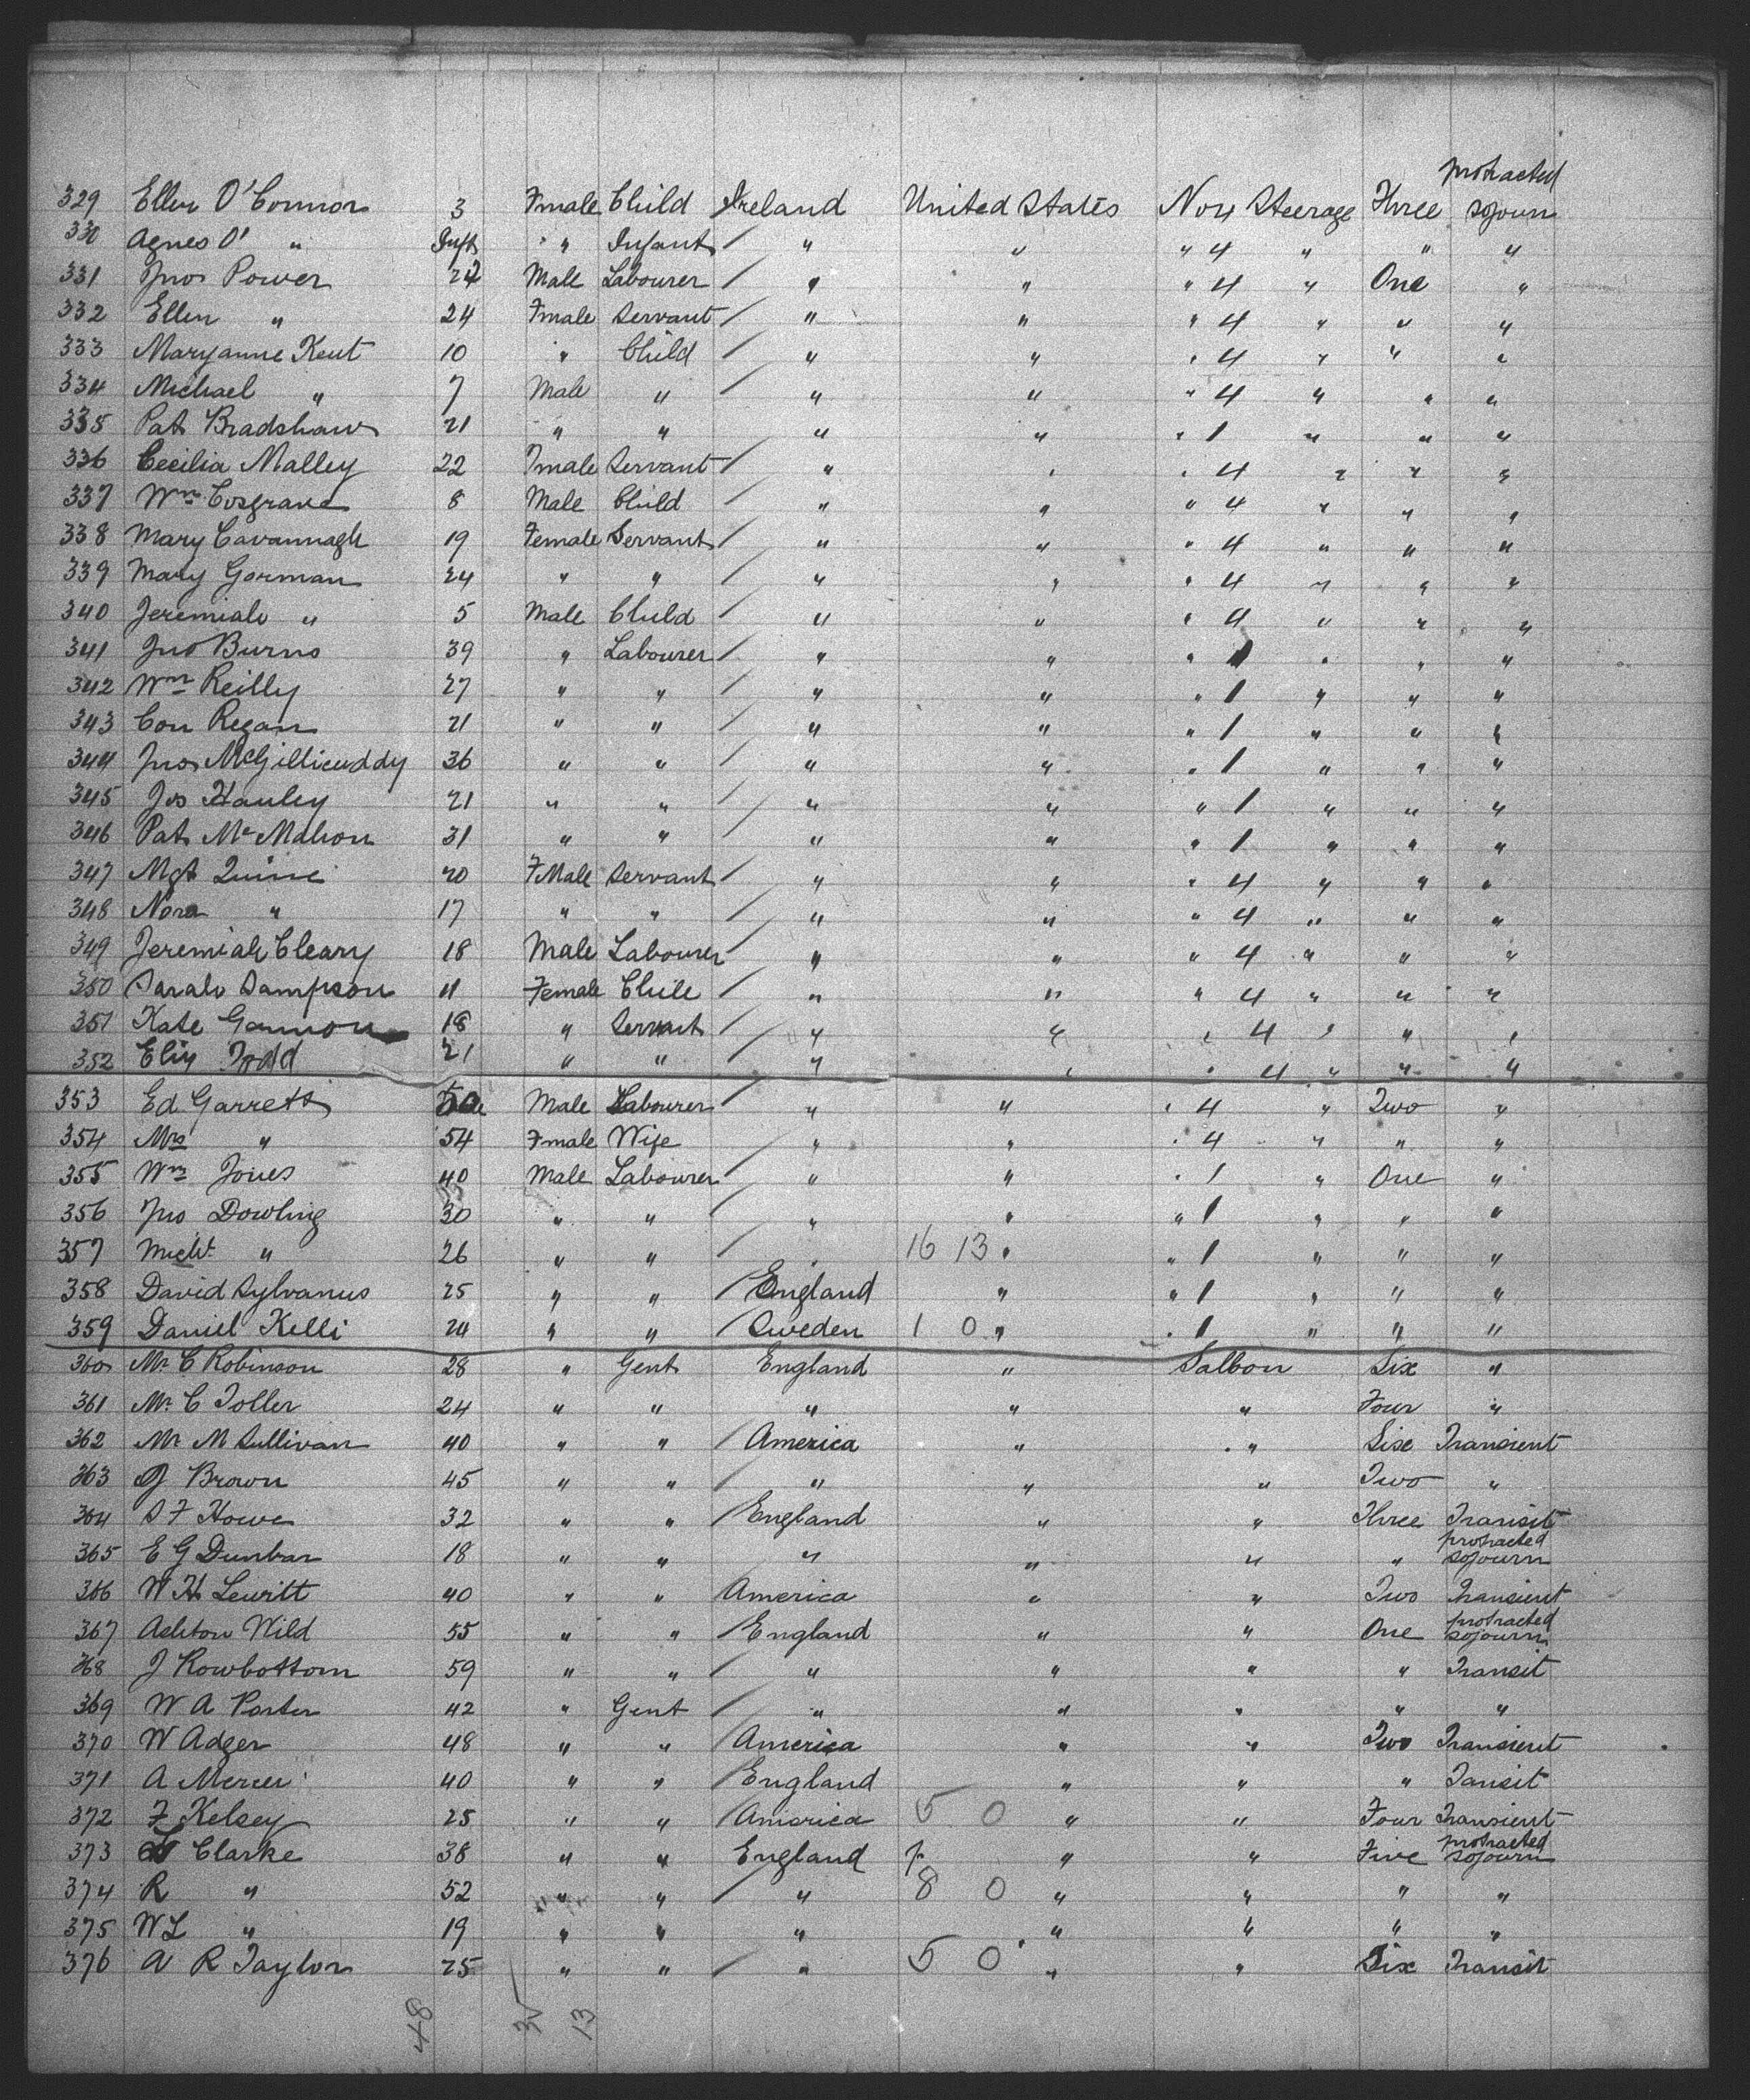 protracted
329 Ellen O'Connor 3 Fmale Child Ireland United States No 4 Steerage Three sojourn
330 Agnes O' " Inft " Infant " " " 4 " " "
331 Jno Power 22 Male Labourer " " " 4 " One "
332 Ellen " 24 Fmale Servant " " " 4 " " "
333 Maryanne Kent 10 " Child " " " 4 " " "
334 Michael " 7 Male " " " " 4 " " "
335 Pat Bradshaw 21 " " " " " 1 " " "
336 Cecilia Malley 22 Fmale Servant " " " 4 " " "
337 Wm Cosgrave 8 Male Child " " " 4 " " "
338 Mary Cavannagh 19 Female Servant " " " 4 " " "
339 Mary Gorman 24 " " " " " 4 " " "
340 Jeremiah " 5 Male Child " " " 4 " " "
341 Jno Burns 39 " Labourer " " " 1 " " "
342 Wm Reilly 27 " " " " " 1 " " "
343 Con Regan 21 " " " " " 1 " " "
344 Jno McGillicuddy 36 " " " " " 1 " " "
345 Jos Hanley 21 " " " " " 1 " " "
346 Pat McMahon 31 " " " " " 1 " " "
347 Mgt Quinn 20 FMale Servant " " " 4 " " "
348 Nora " 17 " " " " " 4 " " "
349 Jeremiah Cleary 18 Male Labourer " " " 4 " " "
350 Sarah Sampson 11 Female Chile " " " 4 " " "
351 Kate Gannon 18 " Servant " " " 4 " " "
352 Eliz Todd 21 " " " " " 4 " " "
353 Ed Garrett 50 Male Labourer " " " 4 " Two "
354 Mrs " 54 Fmale Wife " " " 4 " " "
355 Wm Jones 40 Male Labourer " " " 1 " One "
356 Jno Dowling 30 " " " " " 1 " " "
357 Michl " 26 " " " 16 13 " " 1 " " "
358 David Sylvanus 25 " " England " " 1 " " "
359 Daniel Kelli 24 " " Sweden 1 0 " " 1 " " "
360 Mr C Robinson 28 " Gent England " Salbon Six "
361 Mr C Toller 24 " " " " " Four "
362 Mr M Sullivan 40 " " America " " Six Transient
363 J Brown 45 " " " " " Two "
364 S F Howe 32 " " England " " Three Transit
365 E G Dunbar 18 " " " " " " protracted sojourn
366 W H Lewitt 40 " " America " " Two Transient
367 Ashton Wild 55 " " England " " One protracted sojourn
368 J Rowbottom 59 " " " " " " Transit
369 W A Porter 42 " Gent " " " " "
370 W Adger 48 " " America " " Two Transient
371 A Mercer 40 " " England " " " Tansit
372 F Kelsey 25 " " America 5 0 " " Four Transient
373 Clarke 38 " " England " " Five protracted sojourn
374 R " 52 " " " 8 0 " " " "
375 W L " 19 " " " " " " "
376 A R Taylor 25 " " " 5 0 " " Six Transit
48 35 13